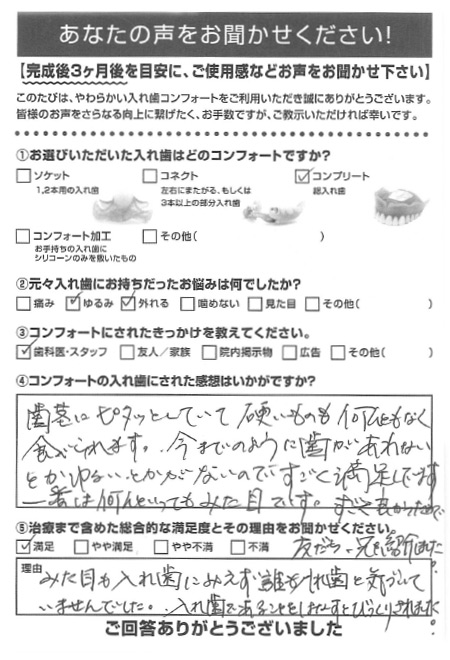 あなたの声をお聞かせください!
【完成後3ヶ月後を目安に、ご使用感などお声をお聞かせ下さい】
このたびは、やわらかい入れ歯コンフォートをご利用いただき誠にありがとうございます。
皆様のお声をさらなる向上に繋げたく、お手数ですが、ご教示いただければ幸いです。
①お選びいただいた入れ歯はどのコンフォートですか?
ソケット
1,2本用の入れ歯
コネクト
左右にまたがる、もしくは
3本以上の部分入れ歯
コンプリート
総入れ歯
コンフォート加工
お手持ちの入れ歯に
シリコーンのみを敷いたもの
その他( )
②元々入れ歯にお持ちだったお悩みは何でしたか?
痛み ゆるみ 外れる 噛めない 見た目 その他( )
③コンフォートにされたきっかけを教えてください。
歯科医・スタッフ 友人/家族 院内掲示物 広告 その他( )
④コンフォートの入れ歯にされた感想はいかがですか?
歯茎にピタッとしていて硬いものも何んともなく
食べられます。今までのように歯があれない
とかゆるいとかがないのですごく満足してます
一番は何んといってもみた目です。すごく良かったので
⑤治療まで含めた総合的な満足度とその理由をお聞かせください。
友だち、兄も紹介しました。
満足 やや満足 やや不満 不満
理由
みた目も入れ歯にみえず誰も入れ歯と気づいて
いませんでした。入れ歯であることをはなすとびっくりされました。
ご回答ありがとうございました